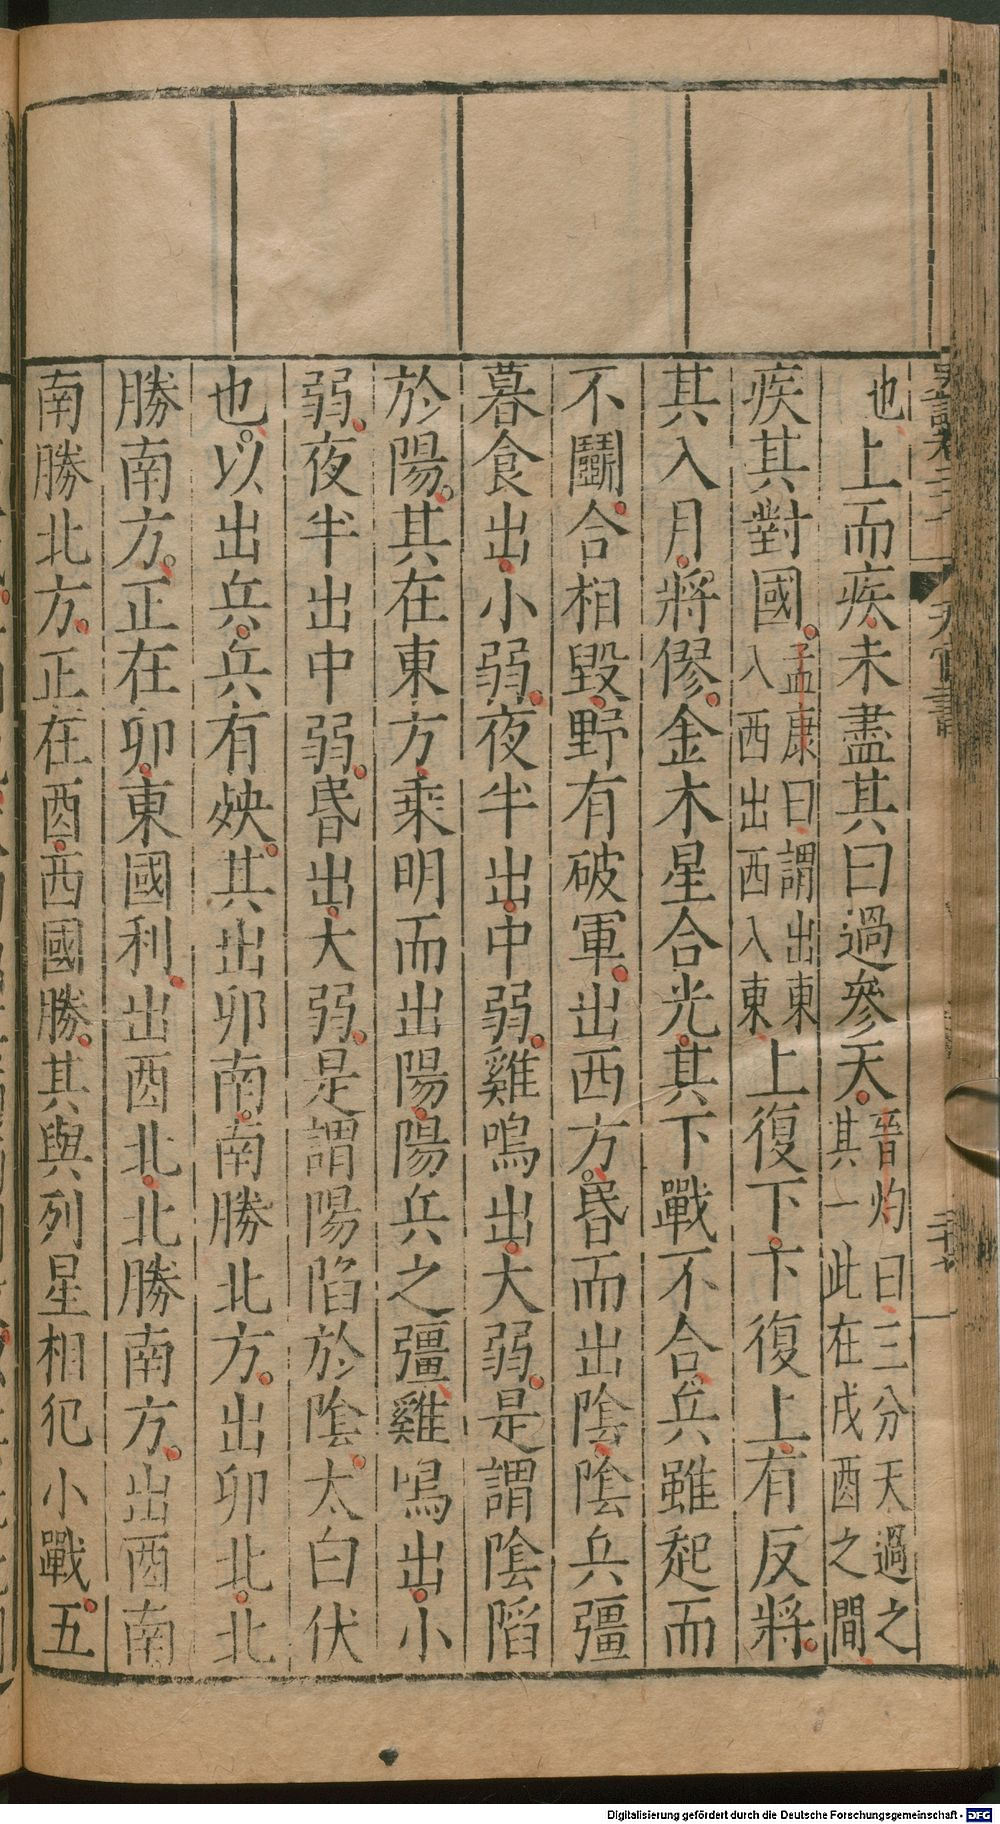 也上而疾未盡其曰過參天晉灼曰三分天過之其一此在戌酉之間
疾其對國孟康曰謂出東入西出西入東上復下下復上有反將
其入月將僇金木星合光其下戰不合兵雖起而
不鬭合相毀野有破軍出西方昏而出陰陰兵彊
暮食出小弱夜半出中弱雞鳴出大弱是謂陰陷
於陽其在東方乘明而出陽陽兵之彊雞鳴出小
弱夜半出中弱昏出大弱是謂陽陷於陰太白伏
也以出兵兵有殃其出卯南南勝北方出卯北北
勝南方正在卯東國利出酉北北勝南方出酉南
南勝北方正在酉西國勝其與列星相犯小戰五
天官書
二十七
Digitalisierung gefördert durch die Deutsche Forschungsgemeinschaft - DFG